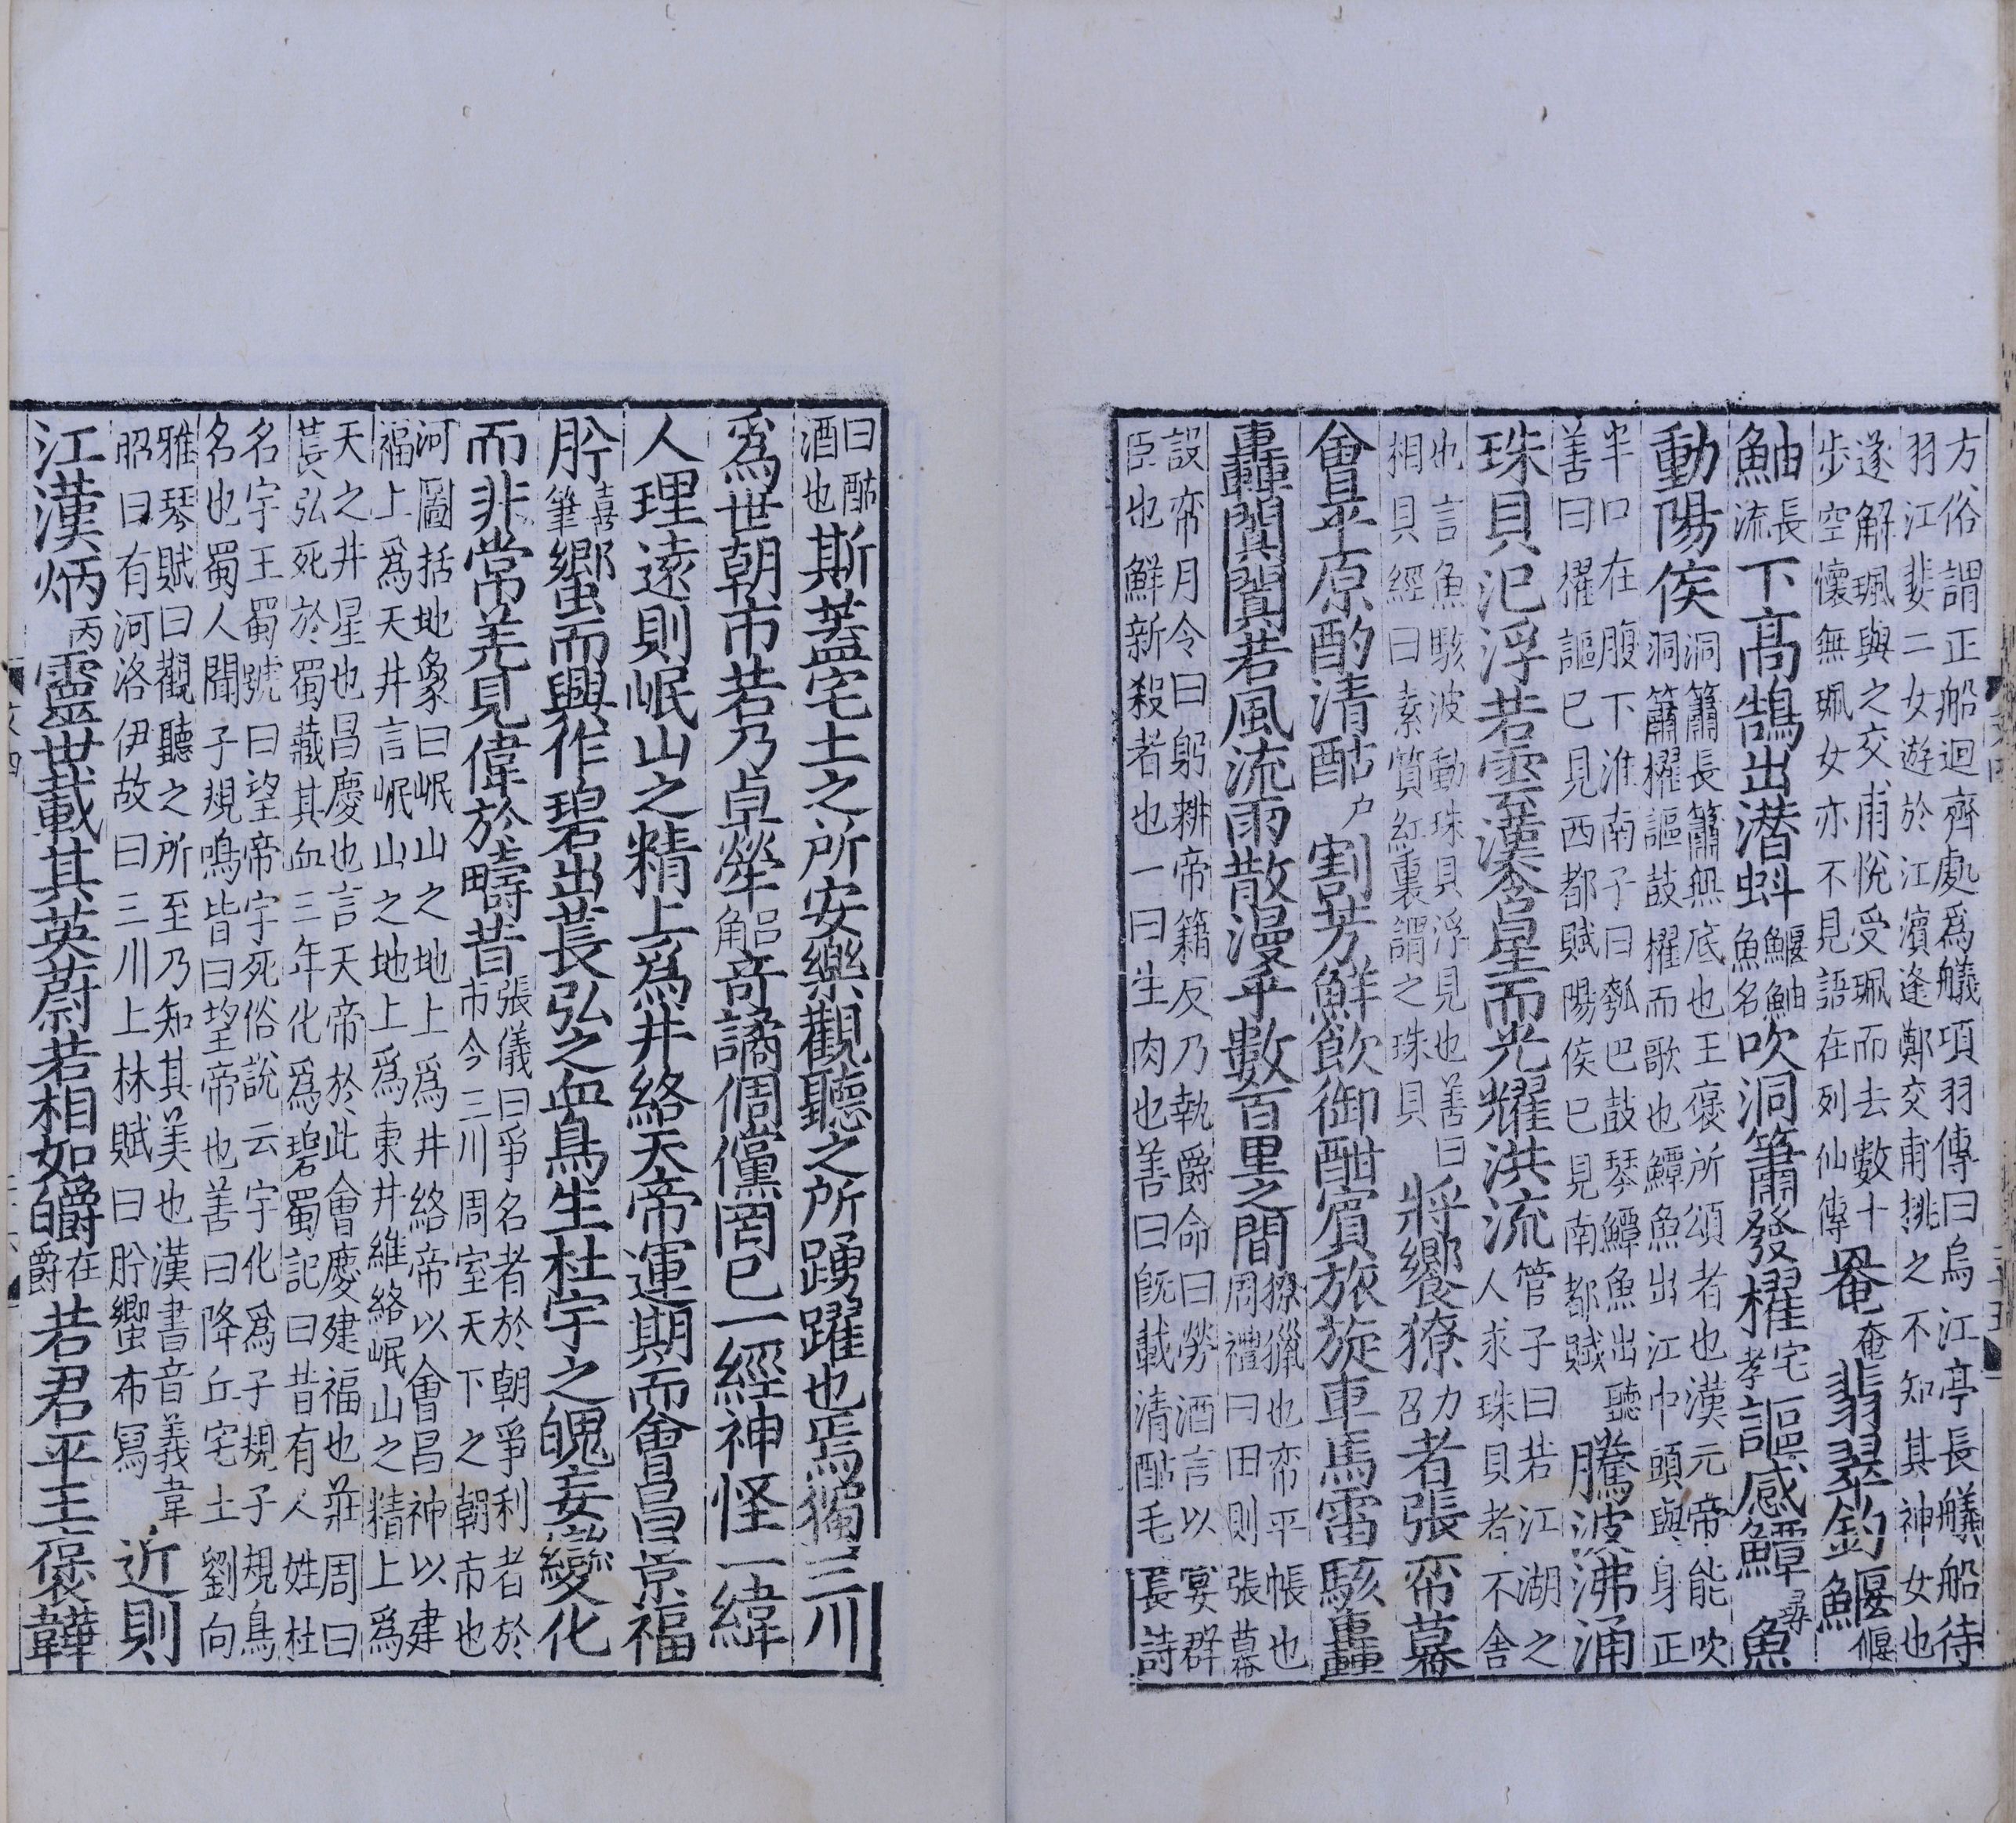 方俗謂正船迴齊處爲艤項羽傳曰烏江亭長艤船待
羽江婓二女遊於江濱逢鄭交甫挑之不知其神女也
遂解珮與之交甫悅受珮而去數十
步空懷無珮女亦不見語在列仙傳
罨奄翡翠釣鰋偃
鮋長流下高鵠出潜蚪鰋鮋魚名吹洞簫發櫂宅孝謳感鱏尋魚
動陽侯洞簫長簫無底也王褒所頌者也漢元帝能吹
洞簫櫂謳鼓櫂而歌也鱏魚出江中頭與身正
半口在腹下淮南子曰瓠巴鼓琴鱏魚出聽
善曰櫂謳巳見西都賦陽侯巳見南都賦
騰波沸涌
珠貝汜浮若雲漢含星而光耀洪流管子曰若江湖之
人求珠貝者不舍
也言魚駭波動珠貝浮見也善曰
相貝經曰素質紅裏謂之珠貝
將饗獠力召者張帟幕
會平原酌清酤户割芳鮮飲御酣賔旅旋車馬雷駭轟
轟闐闐若風流雨散漫乎數百里之間獠獵也帟平帳也
周禮曰田則張幕
設帟月令曰躬耕帝籍反乃執爵命曰勞酒言以宴群
臣也鮮新殺者也一曰生肉也善曰旣載清酤毛萇詩
曰酤
酒也
斯葢宅土之所安樂觀聽之所踴躍也焉獨三川
爲世朝市若乃卓犖吕角竒譎倜儻罔巳一經神怪一緯
人理逺則岷山之精上爲井絡天帝運期而會昌景福
肸喜筆蠁而興作碧出萇弘之血鳥生杜宇之魄妄變化
而非常羌見偉於疇昔張儀曰爭名者於朝爭利者於
市今三川周室天下之朝市也
河圖括地象曰岷山之地上爲井絡帝以會昌神以建
福上爲天井言岷山之地上爲東井維絡岷山之精上爲
天之井星也昌慶也言天帝於此會慶建福也莊周曰
萇弘死於蜀藏其血三年化爲碧蜀記曰昔有人姓杜
名宇王蜀號曰望帝宇死俗說云宇化爲子規子規鳥
名也蜀人聞子規鳴皆曰望帝也善曰降丘宅土劉向
雅琴賦曰觀聽之所至乃知其美也漢書音義韋
昭曰有河洛伊故曰三川上林賦曰肸蠁布寫
近則
江漢炳丙靈世載其英蔚若相如皭在爵若君平王褒韡